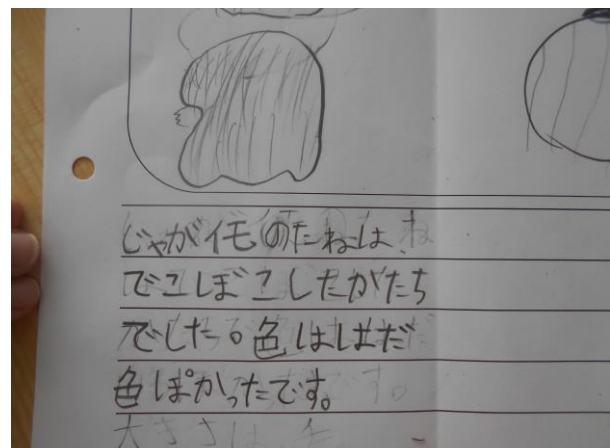 じゃがイモのたねは、
でこぼこしたがたち
でした。色ははだ
色ぽかったです。
大きさは